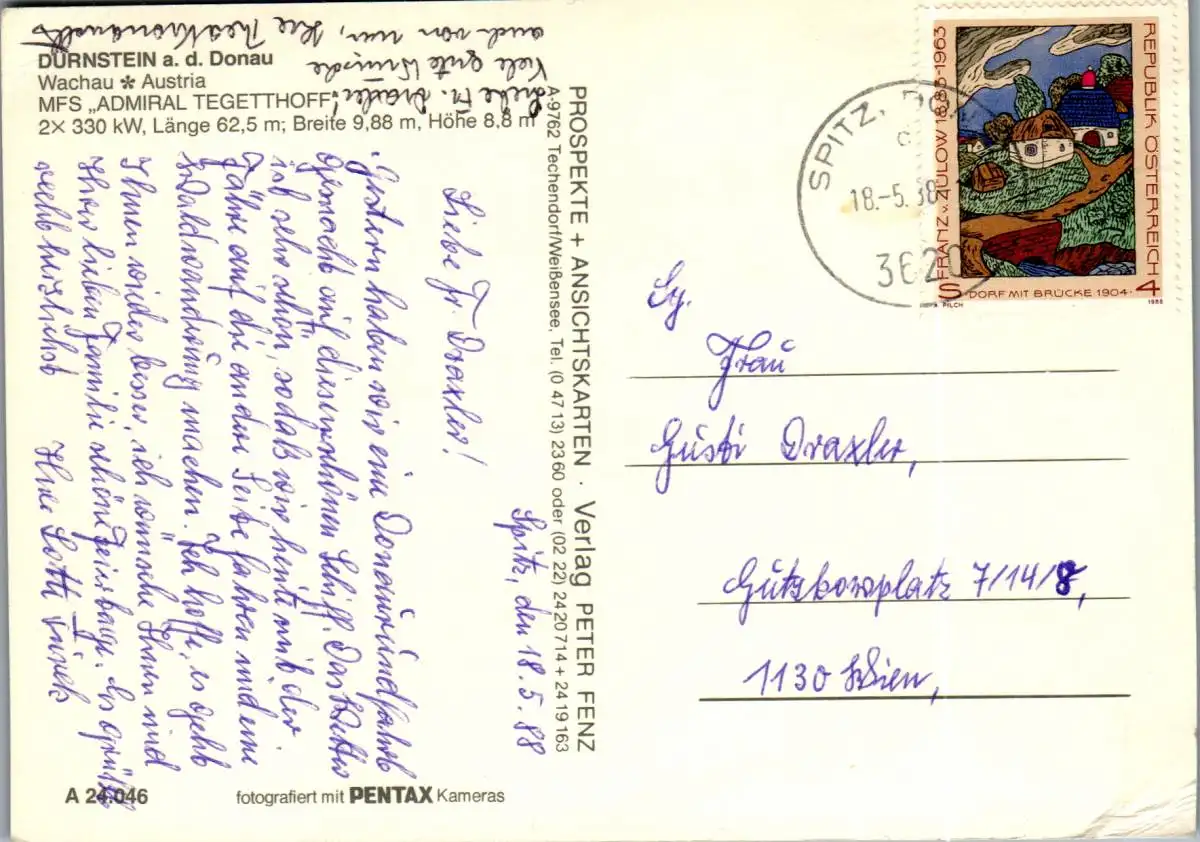 DÜRNSTEIN a. d. Donau
Wachau * Austria
MFS „ADMIRAL TEGETTHOFF"
2× 330 kW, Länge 62,5 m; Breite 9,88 m, Höhe 8,8 m
Liebe Fr. Draxler!
Viele gute Wünsche
auch von mir, Ihre
Spitz, den 18.5.88
Liebe Fr. Draxler!
Gestern haben wir eine Donaurundfahrt
gemacht auf diesem schönen Schiff. Das Wetter
ist sehr schön, sodaß wir heute mit der
Fähre auf die andere Seite fahren und eine
Waldwanderung machen. Ich hoffe, es geht
Ihnen wieder besser, ich wünsche Ihnen und
Ihrer lieben Familie schöne Feiertage. Es grüßt
recht herzlichst Ihre Lotte
PROSPEKTE + ANSICHTSKARTEN · Verlag PETER FENZ
A-9762 Techendorf/Weißensee, Tel. (0 47 13) 23 60 oder (02 22) 24 20 714 + 24 19 163
A 24.046
fotografiert mit PENTAX Kameras
SPITZ,
18.-5.88
3620
FRANTZ v. ZÜLOW 1883-1963
REPUBLIK ÖSTERREICH
S 4
·DORF MIT BRÜCKE 1904·
PILCH
1988
Frau
Gusti Draxler,
Gutzkowplatz 7/14/8,
1130 Wien,